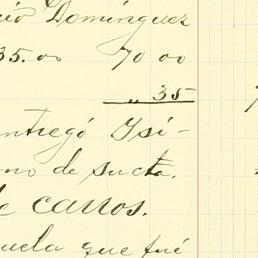 io Domínguez
35.00 70 00
,, 35
ntregó Ysi-
no de su cta.
e carros.
uela que fué